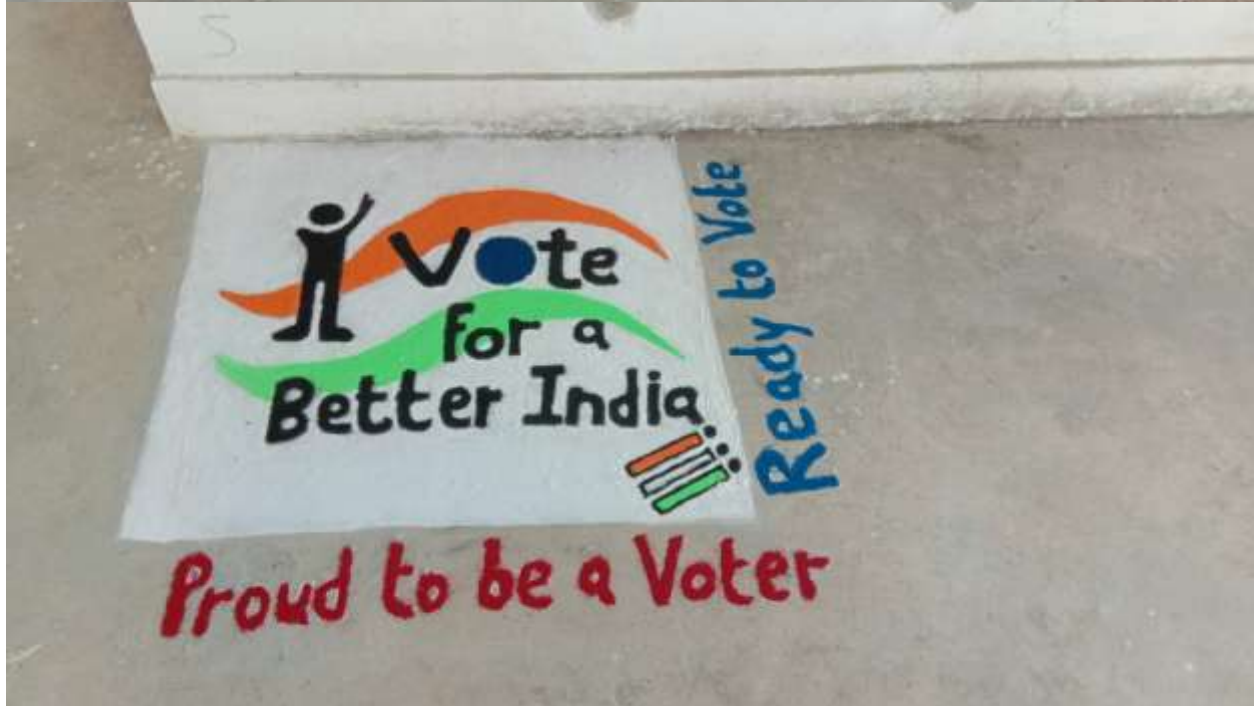 S
Vote
for a
Better India
Ready to Vote
Proud to be a Voter